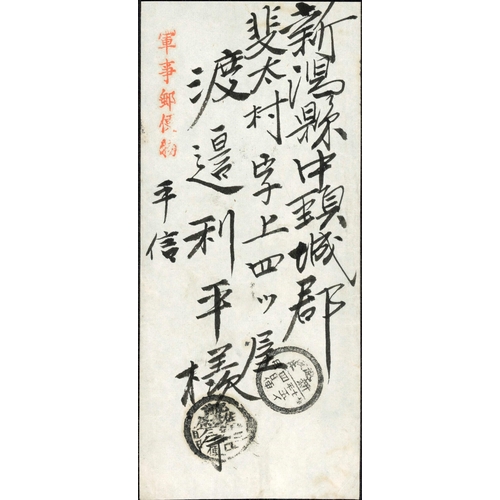 新潟縣中頸城郡
斐太村字上四ツ屋
渡邉利平様
軍事郵便物
平信